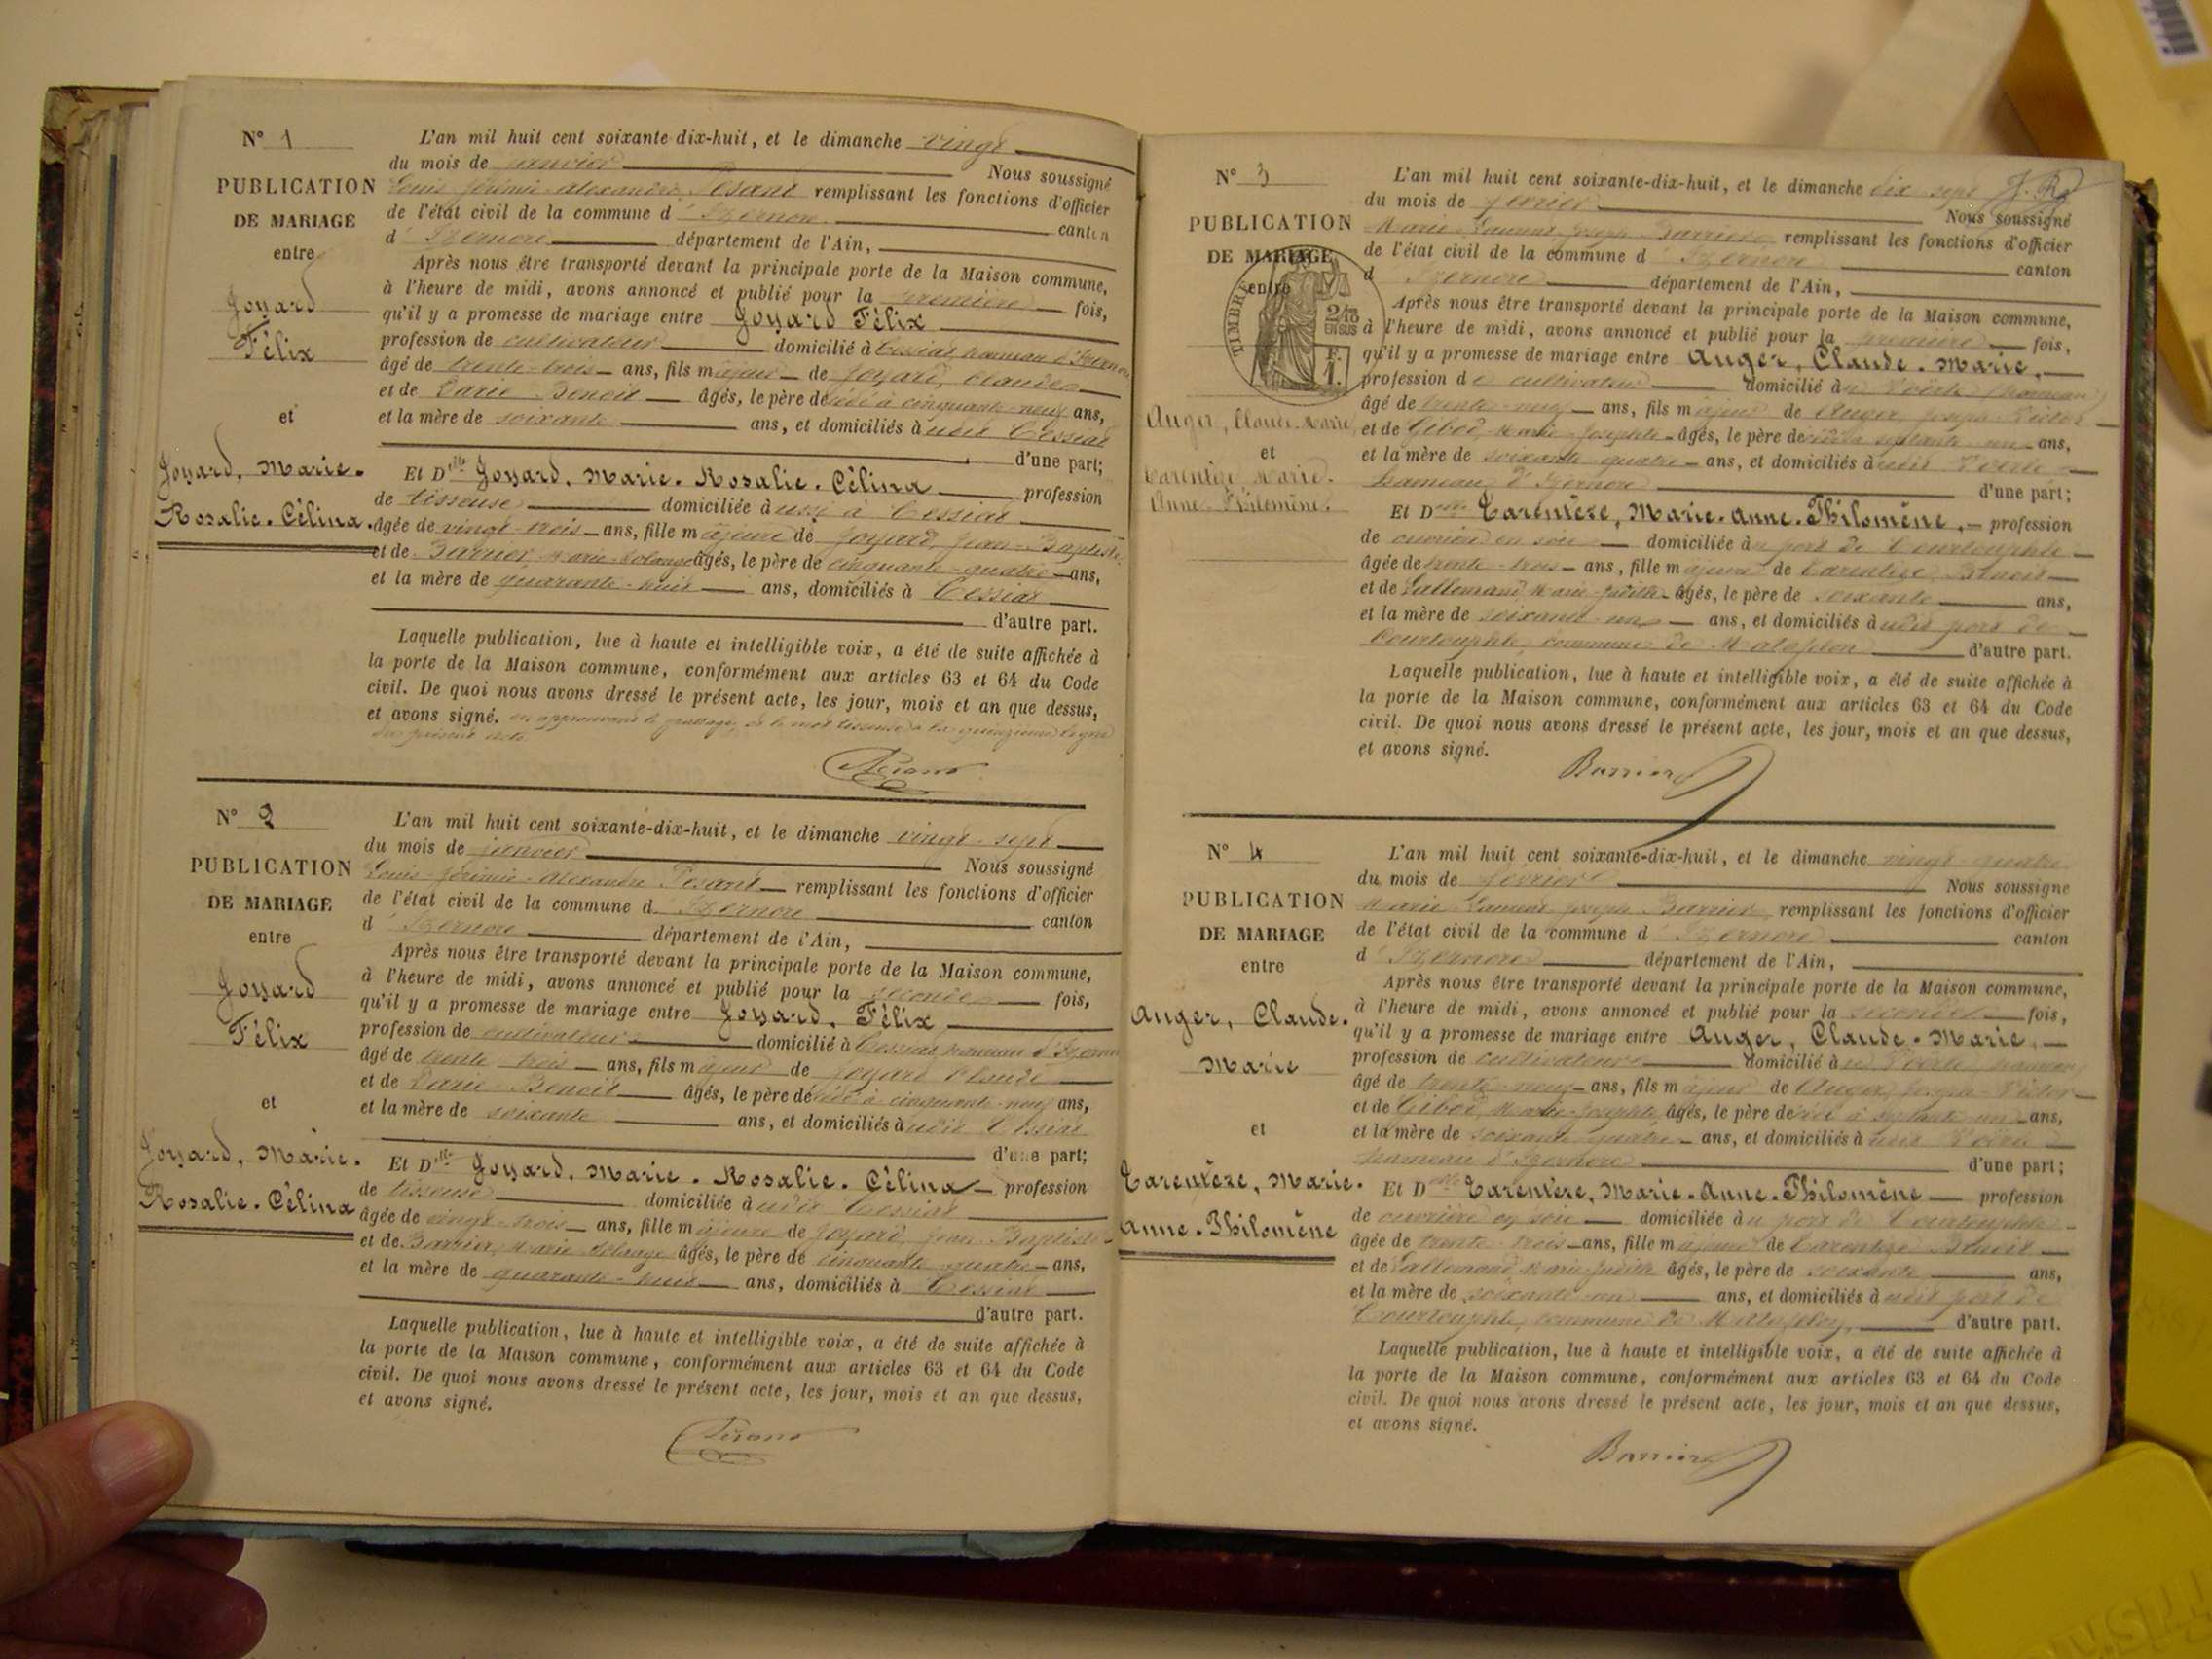 N° 1
PUBLICATION
DE MARIAGE
entre
Joyard
Félix
et
Joyard, Marie.
Rosalie. Célina.
L'an mil huit cent soixante-dix-huit, et le dimanche vingt
du mois de janvier Nous soussigné
Louis Jérémie Alexandre remplissant les fonctions d'officier
de l'état civil de la commune d'Izernore canton
d'Izernore département de l'Ain,
Après nous être transporté devant la principale porte de la Maison commune,
à l'heure de midi, avons annoncé et publié pour la première fois,
qu'il y a promesse de mariage entre Joyard Félix
profession de cultivateur domicilié à Cessiat hameau d'Izernore
âgé de trente-trois ans, fils majeur de Joyard, Claude
et de Benoît âgés, le père décédé à cinquante-neuf ans,
et la mère de soixante ans, et domiciliés à udit Cessiat
d'une part;
Et Dlle Joyard, Marie. Rosalie. Célina profession
de tisseuse domiciliée à ussi à Cessiat
âgée de vingt-trois ans, fille majeure de Joyard, Jean-Baptiste
et de Marie-Solange âgés, le père de cinquante-quatre ans,
et la mère de quarante-huit ans, domiciliés à Cessiat
d'autre part.
Laquelle publication, lue à haute et intelligible voix, a été de suite affichée à
la porte de la Maison commune, conformément aux articles 63 et 64 du Code
civil. De quoi nous avons dressé le présent acte, les jour, mois et an que dessus,
et avons signé. en approuvant le grattage de le mot tisseuse à la quinzième ligne
du présent acte
N° 2
PUBLICATION
DE MARIAGE
entre
Joyard
Félix
et
Joyard, Marie.
Rosalie. Célina
L'an mil huit cent soixante-dix-huit, et le dimanche vingt-sept
du mois de janvier Nous soussigné
Louis Jérémie Alexandre remplissant les fonctions d'officier
de l'état civil de la commune d'Izernore canton
d'Izernore département de l'Ain,
Après nous être transporté devant la principale porte de la Maison commune,
à l'heure de midi, avons annoncé et publié pour la seconde fois,
qu'il y a promesse de mariage entre Joyard, Félix
profession de cultivateur domicilié à Cessiat hameau d'Izernore
âgé de trente-trois ans, fils majeur de Joyard Claude
et de Benoît âgés, le père décédé à cinquante-neuf ans,
et la mère de soixante ans, et domiciliés à udit Cessiat
d'une part;
Et Dlle Joyard. Marie. Rosalie. Célina profession
de tisseuse domiciliée à udit Cessiat
âgée de vingt-trois ans, fille majeure de Joyard, Jean-Baptiste
et de Marie Solange âgés, le père de cinquante-quatre ans,
et la mère de quarante-huit ans, domiciliés à Cessiat
d'autre part.
Laquelle publication, lue à haute et intelligible voix, a été de suite affichée à
la porte de la Maison commune, conformément aux articles 63 et 64 du Code
civil. De quoi nous avons dressé le présent acte, les jour, mois et an que dessus,
et avons signé.
N° 3
PUBLICATION
DE MARIAGE
entre
TIMBRE
2/10
EN SUS
F.
1.
Auger, Claude. Marie
et
Tarentèze, Marie.
Anne. Philomène.
L'an mil huit cent soixante-dix-huit, et le dimanche dix sept
du mois de février Nous soussigné
Marie Laurent Joseph Barrier remplissant les fonctions d'officier
de l'état civil de la commune d'Izernore canton
d'Izernore département de l'Ain,
Après nous être transporté devant la principale porte de la Maison commune,
à l'heure de midi, avons annoncé et publié pour la première fois,
qu'il y a promesse de mariage entre Auger, Claude. Marie.
profession de cultivateur domicilié à hameau
âgé de trente-neuf ans, fils majeur de Auger, Joseph Victor
et de Gibod, Marie-Josephte âgés, le père décédé à septante-un ans,
et la mère de soixante-quatre ans, et domiciliés à udit
hameau d'Izernore d'une part;
Et Dlle Tarentèze, Marie. Anne. Philomène. profession
de ouvrière en soie domiciliée à u port de Courtouphle
âgée de trente-trois ans, fille majeure de Tarentèze, Benoît
et de Lallemand, Marie-Judith âgés, le père de soixante ans,
et la mère de soixante-un ans, et domiciliés à udit port de
Courtouphle, commune de Matafelon d'autre part.
Laquelle publication, lue à haute et intelligible voix, a été de suite affichée à
la porte de la Maison commune, conformément aux articles 63 et 64 du Code
civil. De quoi nous avons dressé le présent acte, les jour, mois et an que dessus,
et avons signé.
Barrier
N° 4
PUBLICATION
DE MARIAGE
entre
Auger, Claude.
Marie
et
Tarentèze, Marie.
Anne. Philomène
L'an mil huit cent soixante-dix-huit, et le dimanche vingt-quatre
du mois de février Nous soussigné
Marie Laurent Joseph Barrier, remplissant les fonctions d'officier
de l'état civil de la commune d'Izernore canton
d'Izernore département de l'Ain,
Après nous être transporté devant la principale porte de la Maison commune,
à l'heure de midi, avons annoncé et publié pour la seconde fois,
qu'il y a promesse de mariage entre Auger, Claude. Marie.
profession de cultivateur domicilié à hameau
âgé de trente-neuf ans, fils majeur de Auger, Joseph-Victor
et de Gibod, Marie-Josephte, âgés, le père décédé à septante-un ans,
et la mère de soixante-quatre ans, et domiciliés à udit
hameau d'Izernore d'une part;
Et Dlle Tarentèze, Marie. Anne. Philomène profession
de ouvrière en soie domiciliée à u port de Courtouphle
âgée de trente-trois ans, fille majeure de Tarentèze Benoît
et de Lallemand, Marie-Judith âgés, le père de soixante ans,
et la mère de soixante-un ans, et domiciliés à udit port de
Courtouphle, commune de Matafelon, d'autre part.
Laquelle publication, lue à haute et intelligible voix, a été de suite affichée à
la porte de la Maison commune, conformément aux articles 63 et 64 du Code
civil. De quoi nous avons dressé le présent acte, les jour, mois et an que dessus,
et avons signé.
Barrier